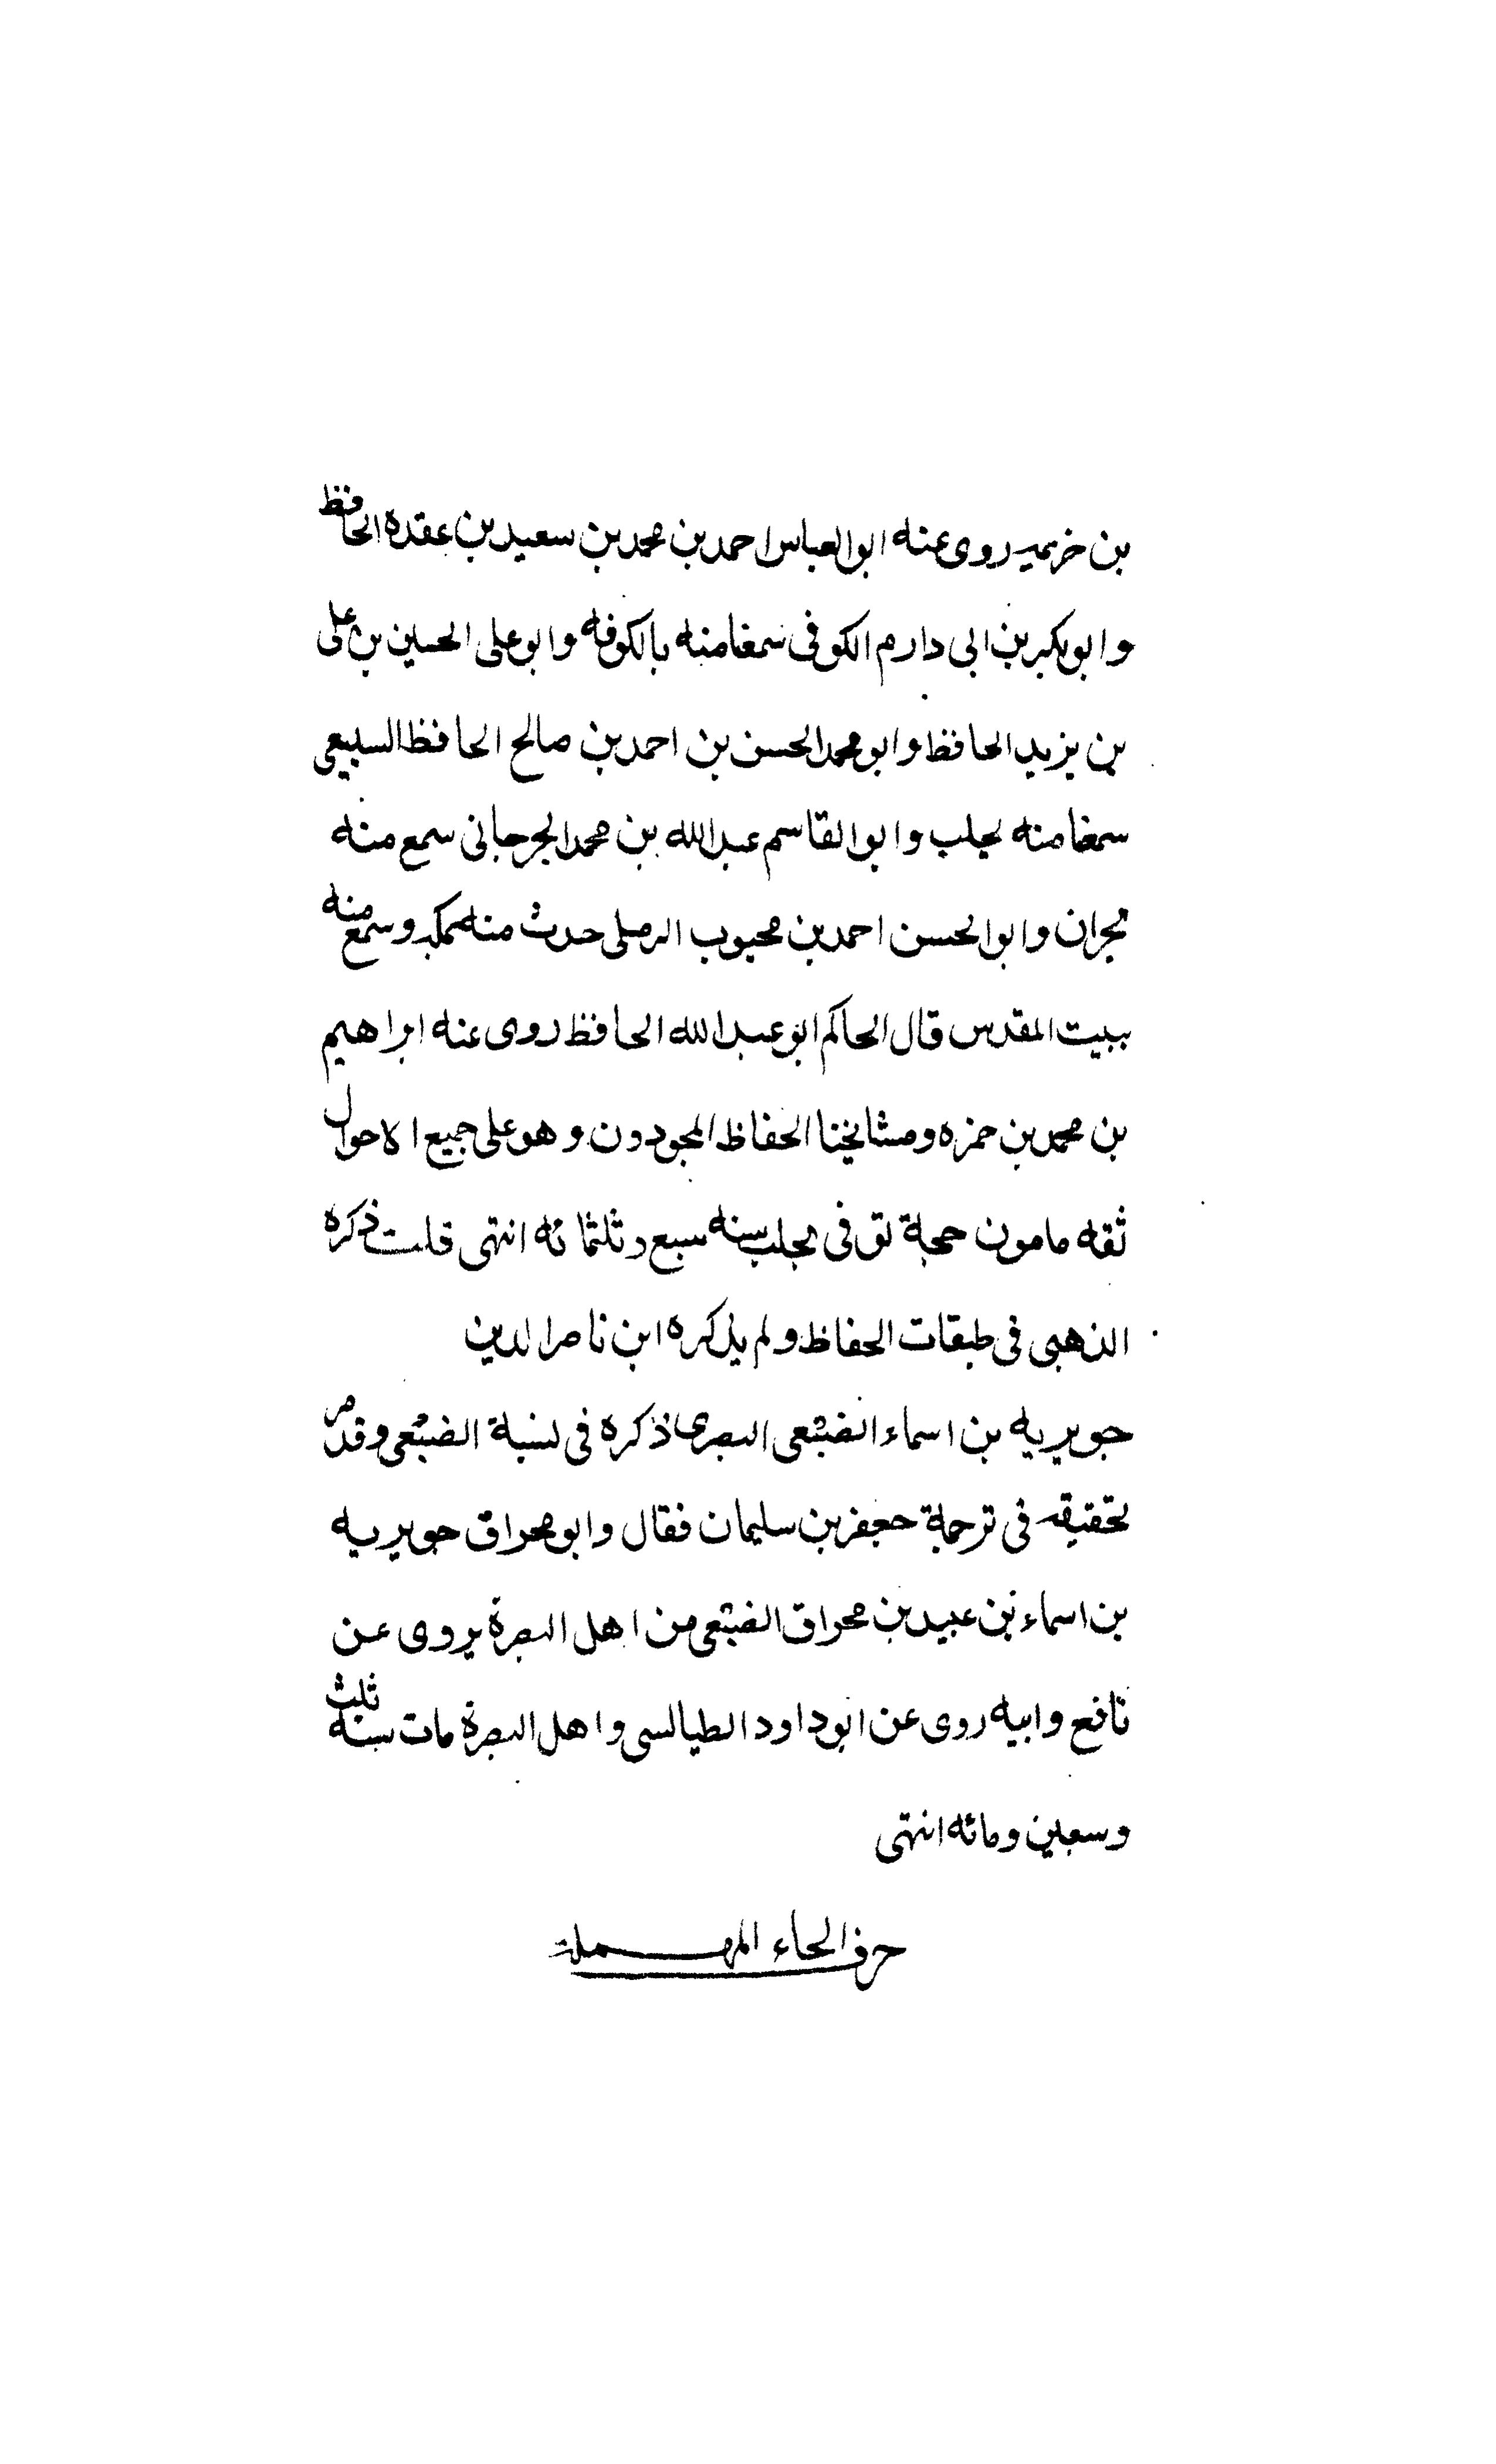 بن خزيمه روى عنه ابو العباس احمد بن محمد بن سعيد بن عقده الحافظ
وابو بكر بن ابى دارم الكوفى سمعا منه بالكوفه وابو على الحسين بن على
بن يزيد الحافظ وابو محمد الحسن بن احمد بن صالح الحافظ السبيعى
سمعا منه بحلب وابو القاسم عبد الله بن محمد الجرجانى سمع منه
بحران وابو الحسن احمد بن محبوب الرملى حدث منه بمكه وسمع منه
ببيت المقدس قال الحاكم ابو عبد الله الحافظ روى عنه ابراهيم
بن محمد بن حمزه ومشايخنا الحفاظ المجودون وهو على جميع الاحوال
ثقه مامون حجة توفى بحلب سنه سبع وثلثمائه انتهى قلت ذكره
الذهبى فى طبقات الحفاظ ولم يذكره ابن ناصر الدين
جويريه بن اسماء الضبعى البصرى ذكره فى نسبة الضبعى وقد مر
تحقيقه فى ترجمة جعفر بن سليمان فقال وابو محراق جويريه
بن اسماء بن عبيد بن محراق الضبعى من اهل البصرة يروى عن
نافع وابيه روى عن ابو داود الطيالسى واهل البصرة مات سنه ثلث
وسبعين ومائه انتهى
حرف الحاء المهملة